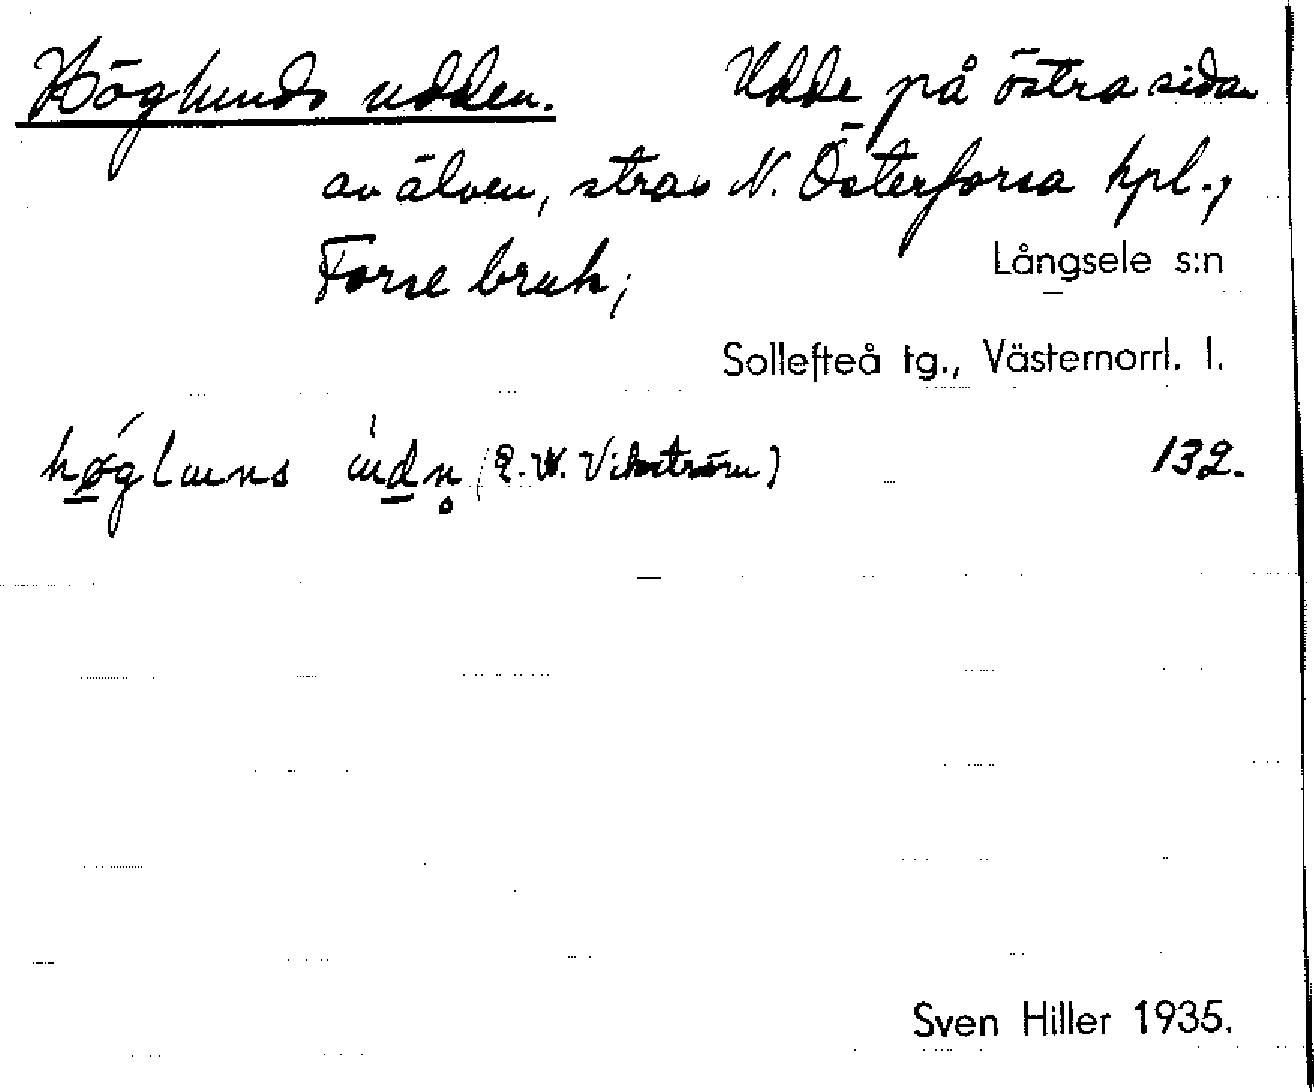 Höglunds udden. Udde på östra sidan
av älven, strax N. Österforsa hpl.,
Forse bruk; Långsele s:n
Sollefteå tg., Västernorrl. l.
(E. W. Vikström) 132.
Sven Hiller 1935.